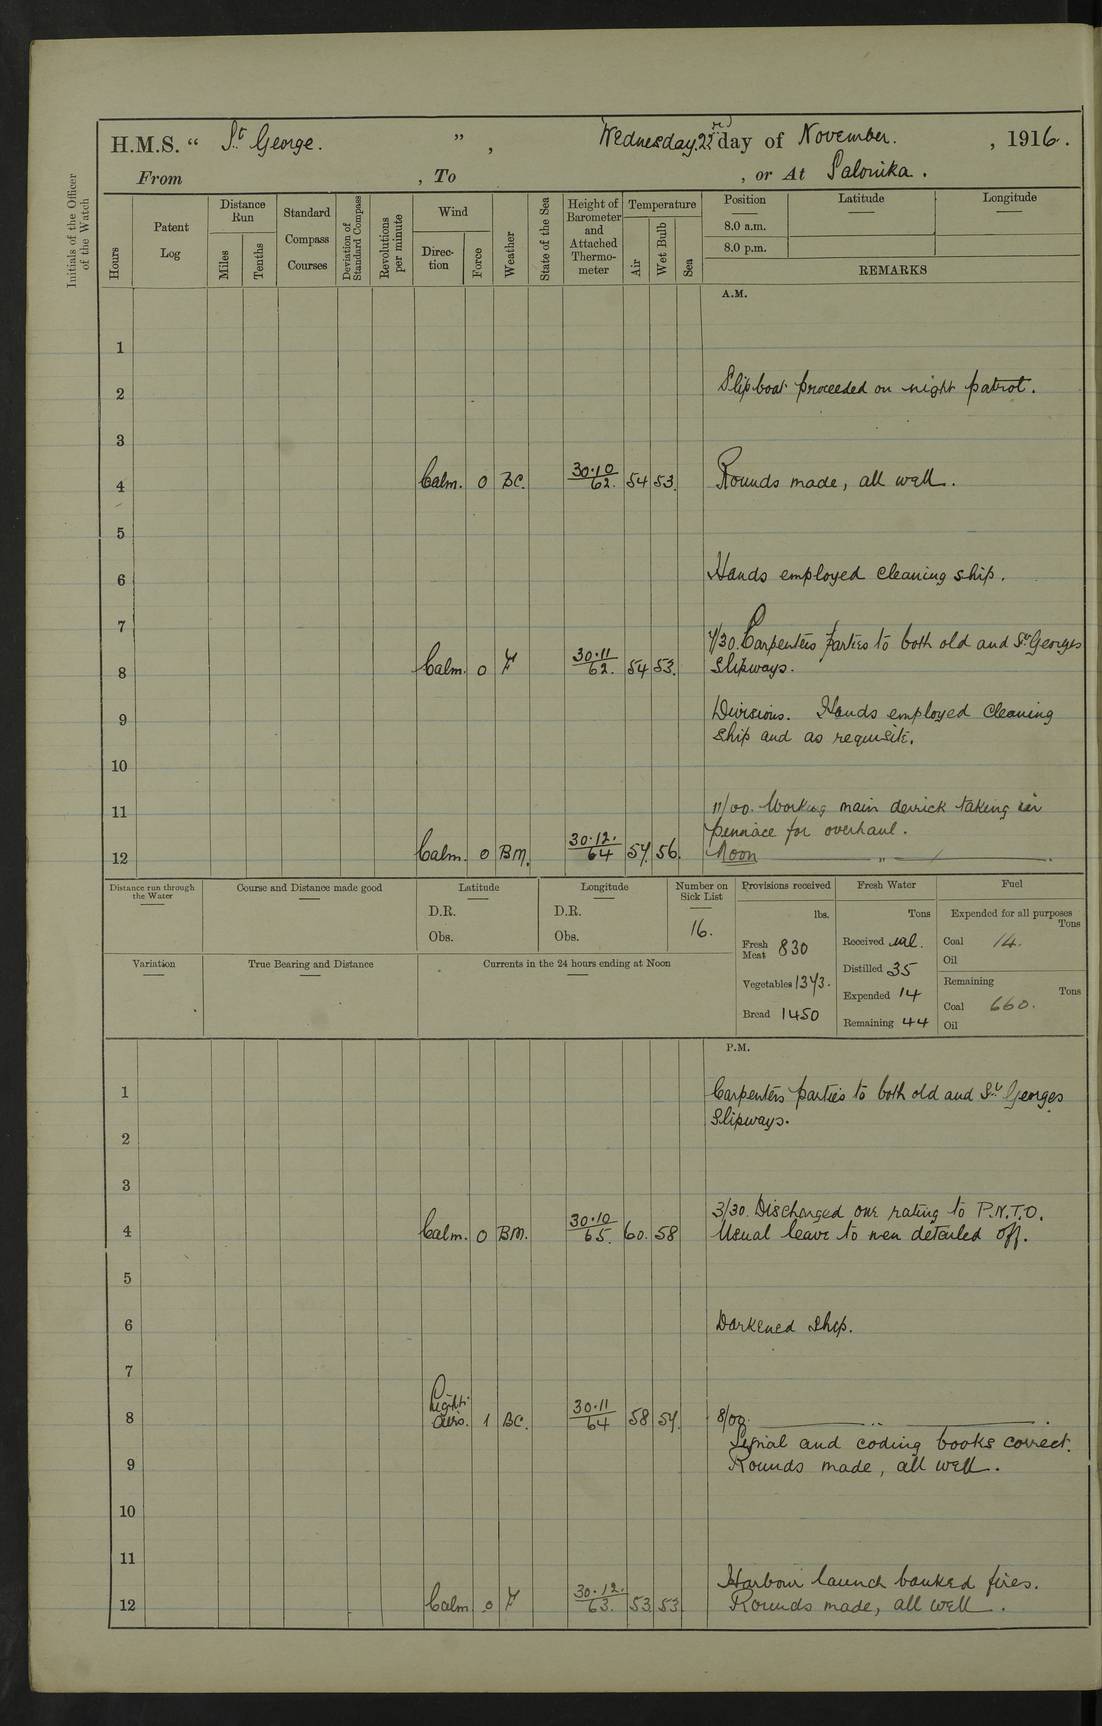 H.M.S. “ St George. ” , Wednesday 22nd day of November. , 1916.
From , To , or At Salonika.
Initials of the Officer of the Watch
Hours
Patent Log
Distance Run
Miles
Tenths
Standard Compass Courses
Deviation of Standard Compass
Revolutions per minute
Wind
Direction
Force
Weather
State of the Sea
Height of Barometer and Attached Thermometer
Temperature
Air
Wet Bulb
Sea
Position
8.0 a.m.
8.0 p.m.
Latitude
Longitude
REMARKS
A.M.
1
2 Slip boat proceeded on night patrol.
3
4 Calm. 0 BC. 30.10/62. 54 53. Rounds made, all well.
5
6 Hands employed cleaning ship.
7
7/30. Carpenters parties to both old and St Georges
8 Calm. 0 F 30.11/62. 54 53. Slipways.
9 Divisions. Hands employed cleaning
ship and as requisite.
10
11 11/00. Working main derrick taking in
pinnace for overhaul.
12 Calm. 0 BM. 30.12./64 57. 56. Noon „
Distance run through the Water
Course and Distance made good
Latitude
D.R.
Obs.
Longitude
D.R.
Obs.
Number on Sick List
16.
Provisions received
lbs.
Fresh Meat 830
Vegetables 1373.
Bread 1450
Fresh Water
Tons
Received nil.
Distilled 35
Expended 14
Remaining 44
Fuel
Expended for all purposes
Tons
Coal 14.
Oil
Remaining
Tons
Coal 660.
Oil
Variation
True Bearing and Distance
Currents in the 24 hours ending at Noon
P.M.
1 Carpenters parties to both old and St Georges
Slipways.
2
3
3/30. Discharged one rating to P.N.T.O.
4 Calm. 0 BM. 30.10/65. 60. 58 Usual leave to men detailed off.
5
6 Darkened ship.
7
8 Light airs. 1 BC. 30.11/64 58 57. 8/00. „
Signal and coding books correct.
9 Rounds made, all well.
10
11
Harbour launch banked fires.
12 Calm 0 F 30.12./63. 53 53 Rounds made, all well.